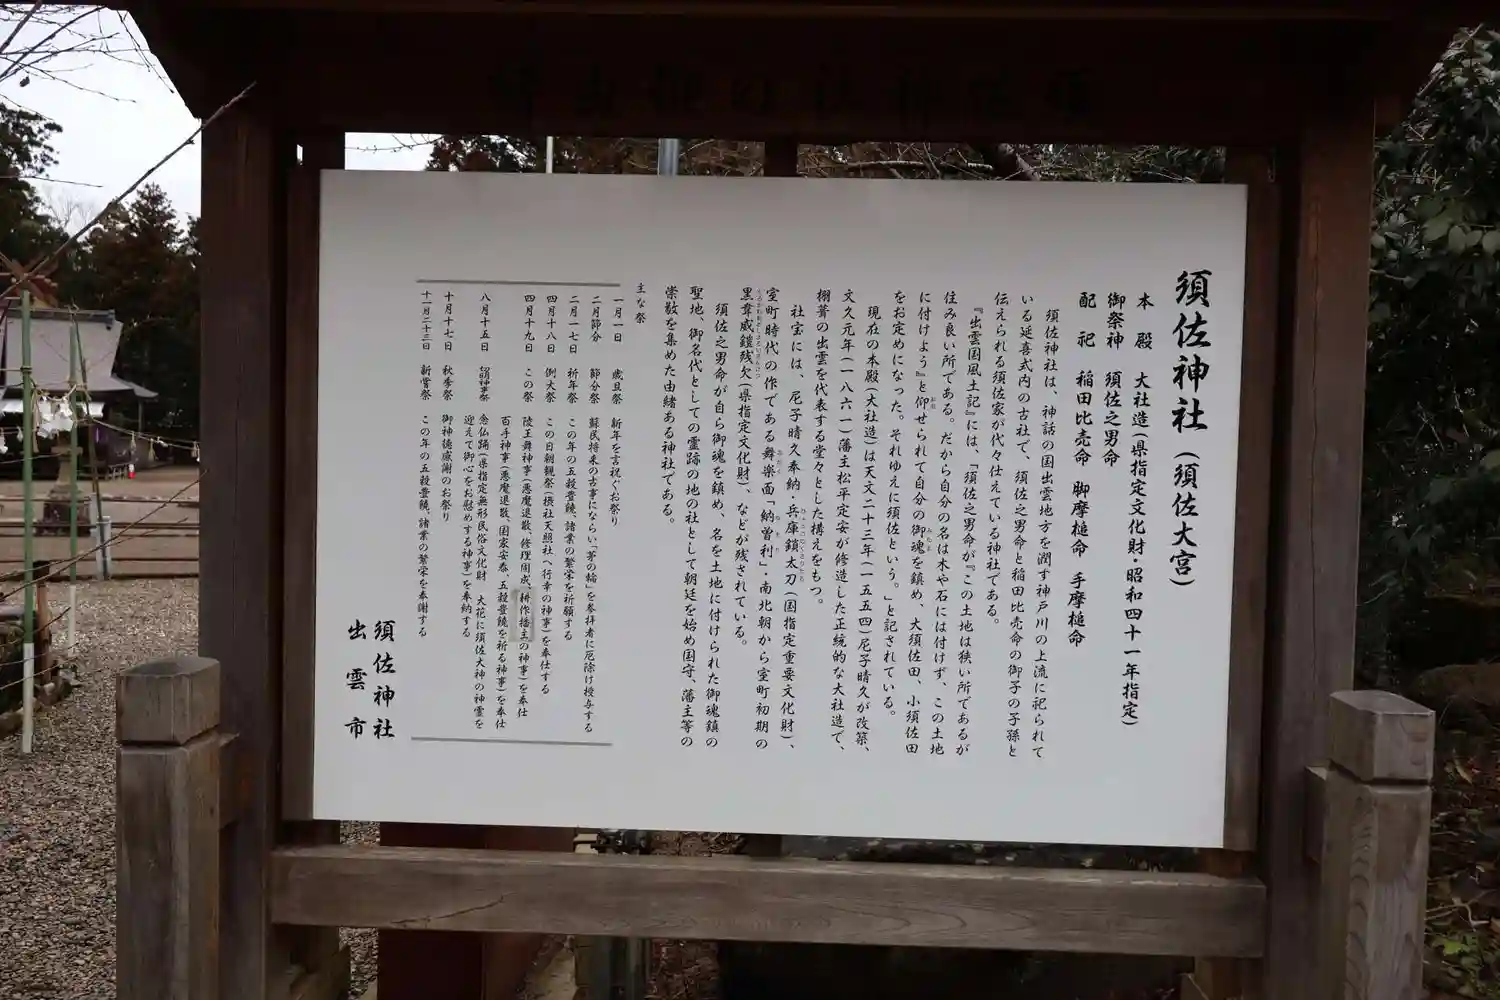 須佐神社（須佐大宮）
本　殿　大社造（県指定文化財・昭和四十一年指定）
御祭神　須佐之男命
配　祀　稲田比売命　脚摩槌命　手摩槌命
須佐神社は、神話の国出雲地方を潤す神戸川の上流に祀られて
いる延喜式内の古社で、須佐之男命と稲田比売命の御子の子孫と
伝えられる須佐家が代々仕えている神社である。
『出雲国風土記』には、「須佐之男命が『この土地は狭い所であるが
住み良い所である。だから自分の名は木や石には付けず、この土地
に付けよう』と仰せられて自分の御魂を鎮め、大須佐田、小須佐田
をお定めになった。それゆえに須佐という。」と記されている。
現在の本殿（大社造）は天文二十三年（一五五四）尼子晴久が改築、
文久元年（一八六一）藩主松平定安が修造した正統的な大社造で、
栩葺の出雲を代表する堂々とした構えをもつ。
社宝には、尼子晴久奉納・兵庫鎖太刀（国指定重要文化財）、
室町時代の作である舞楽面「納曽利」・南北朝から室町初期の
黒韋威鎧残欠（県指定文化財）、などが残されている。
須佐之男命が自ら御魂を鎮め、名を土地に付けられた御魂鎮の
聖地、御名代としての霊跡の地の社として朝廷を始め国守、藩主等の
崇敬を集めた由緒ある神社である。
主な祭
一月一日　歳旦祭　新年を言祝ぐお祭り
二月節分　節分祭　蘇民将来の古事にならい「茅の輪」を参拝者に厄除け授与する
二月一七日　祈年祭　この年の五穀豊饒、諸業の繁栄を祈願する
四月十八日　例大祭　この日朝覲祭（摂社天照社へ行幸の神事）を奉仕する
四月十九日　この祭　陵王舞神事（悪魔退散、修理固成、耕作播主の神事）を奉仕
百手神事（悪魔退散、国家安泰、五穀豊饒を祈る神事）を奉仕
八月十五日　切明神事祭　念仏踊（県指定無形民俗文化財　大花に須佐大神の神霊を
迎えて御心をお慰めする神事）を奉納する
十月十七日　秋季祭　御神徳感謝のお祭り
十一月二十三日　新嘗祭　この年の五穀豊饒、諸業の繁栄を奉謝する
須佐神社
出雲市